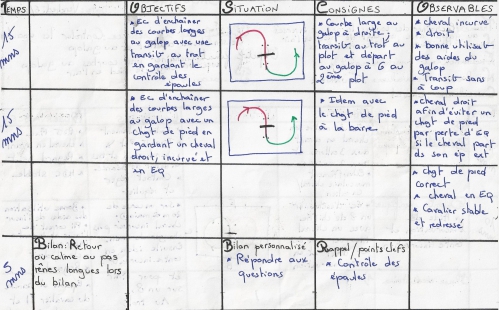 TEMPS
OBJECTIFS
SITUATION
CONSIGNES
OBSERVABLES
15
mns
* EC d'enchaîner
des courbes larges
au galop avec une
transit° au trot
en gardant le
contrôle des
épaules
* Courbe large au
galop à droite ;
transit° au trot au
plot et départ
au galop à G au
2ème plot
* cheval incurvé
* droit
* bonne utilisat°
des aides du
galop
* Transit° sans
à coup
15
mns
* EC d'enchaîner
des courbes larges
au galop avec un
chgt de pied en
gardant un cheval
droit, incurvé et
en EQ
* Idem avec
le chgt de pied
à la barre
* cheval droit
afin d'éviter un
chgt de pied
par perte d'EQ
si le cheval part
ds son ép ext
* chgt de pied
correct
* cheval en EQ
* Cavalier stable
et redressé
5
mns
Bilan: Retour
au calme au pas
rênes longues lors
du bilan
Bilan personnalisé
* Répondre aux
questions
Rappel / points clefs
* Contrôle des
épaules